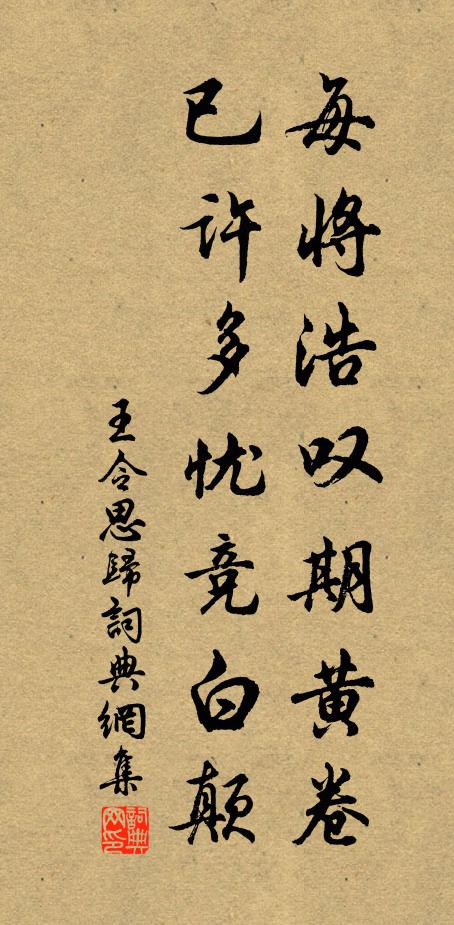 每将浩叹期黄卷
已许多忧竞白颠
王令思歸詞典網集
詞典网印